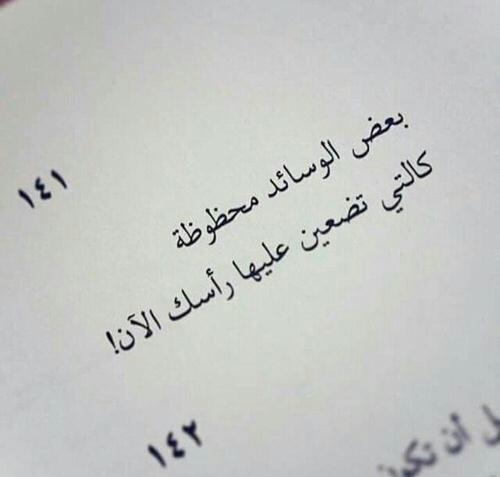 ١٤١
بعض الوسائد محظوظة
كالتي تضعين عليها رأسك الآن!
١٤٢
أن تكون